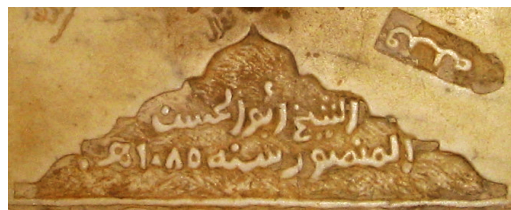 الشيخ أبو الحسن
المنصور سنه ١٠٨٥هـ